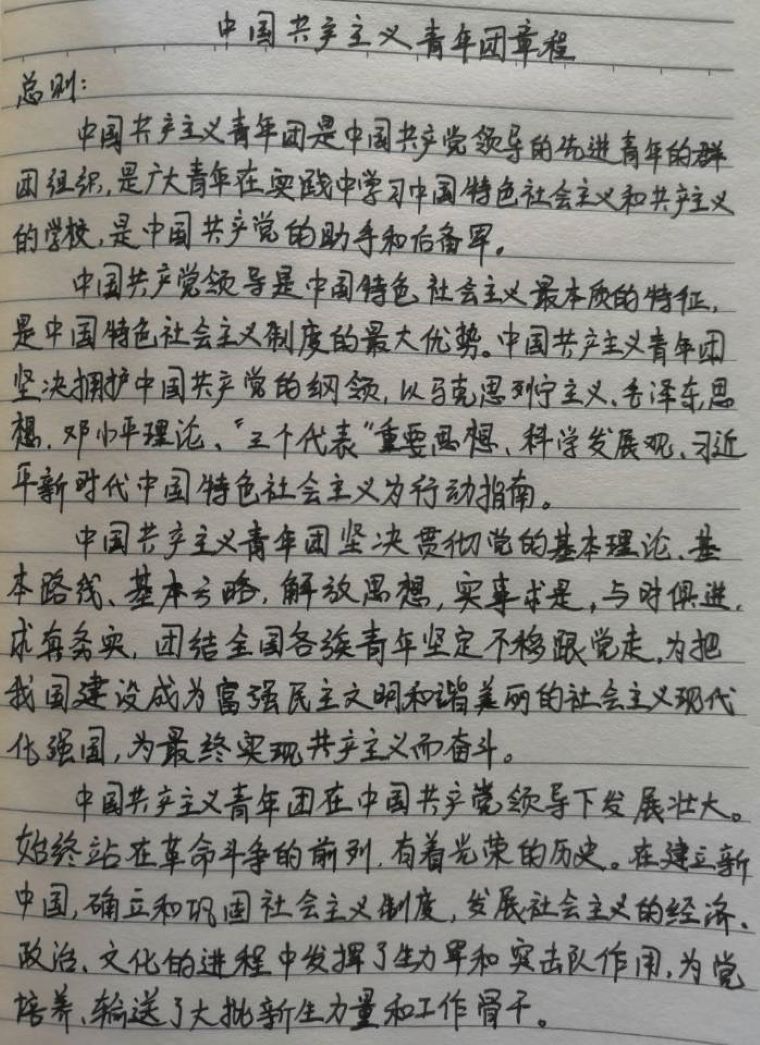 中国共产主义青年团章程
总则:
中国共产主义青年团是中国共产党领导的先进青年的群
团组织,是广大青年在实践中学习中国特色社会主义和共产主义
的学校,是中国共产党的助手和后备军。
中国共产党领导是中国特色社会主义最本质的特征,
是中国特色社会主义制度的最大优势。中国共产主义青年团
坚决拥护中国共产党的纲领,以马克思列宁主义、毛泽东思
想、邓小平理论、“三个代表”重要思想、科学发展观、习近
平新时代中国特色社会主义为行动指南。
中国共产主义青年团坚决贯彻党的基本理论、基
本路线、基本方略,解放思想,实事求是,与时俱进,
求真务实,团结全国各族青年坚定不移跟党走,为把
我国建设成为富强民主文明和谐美丽的社会主义现代
化强国,为最终实现共产主义而奋斗。
中国共产主义青年团在中国共产党领导下发展壮大。
始终站在革命斗争的前列,有着光荣的历史。在建立新
中国,确立和巩固社会主义制度,发展社会主义的经济、
政治、文化的进程中发挥了生力军和突击队作用,为党
培养、输送了大批新生力量和工作骨干。